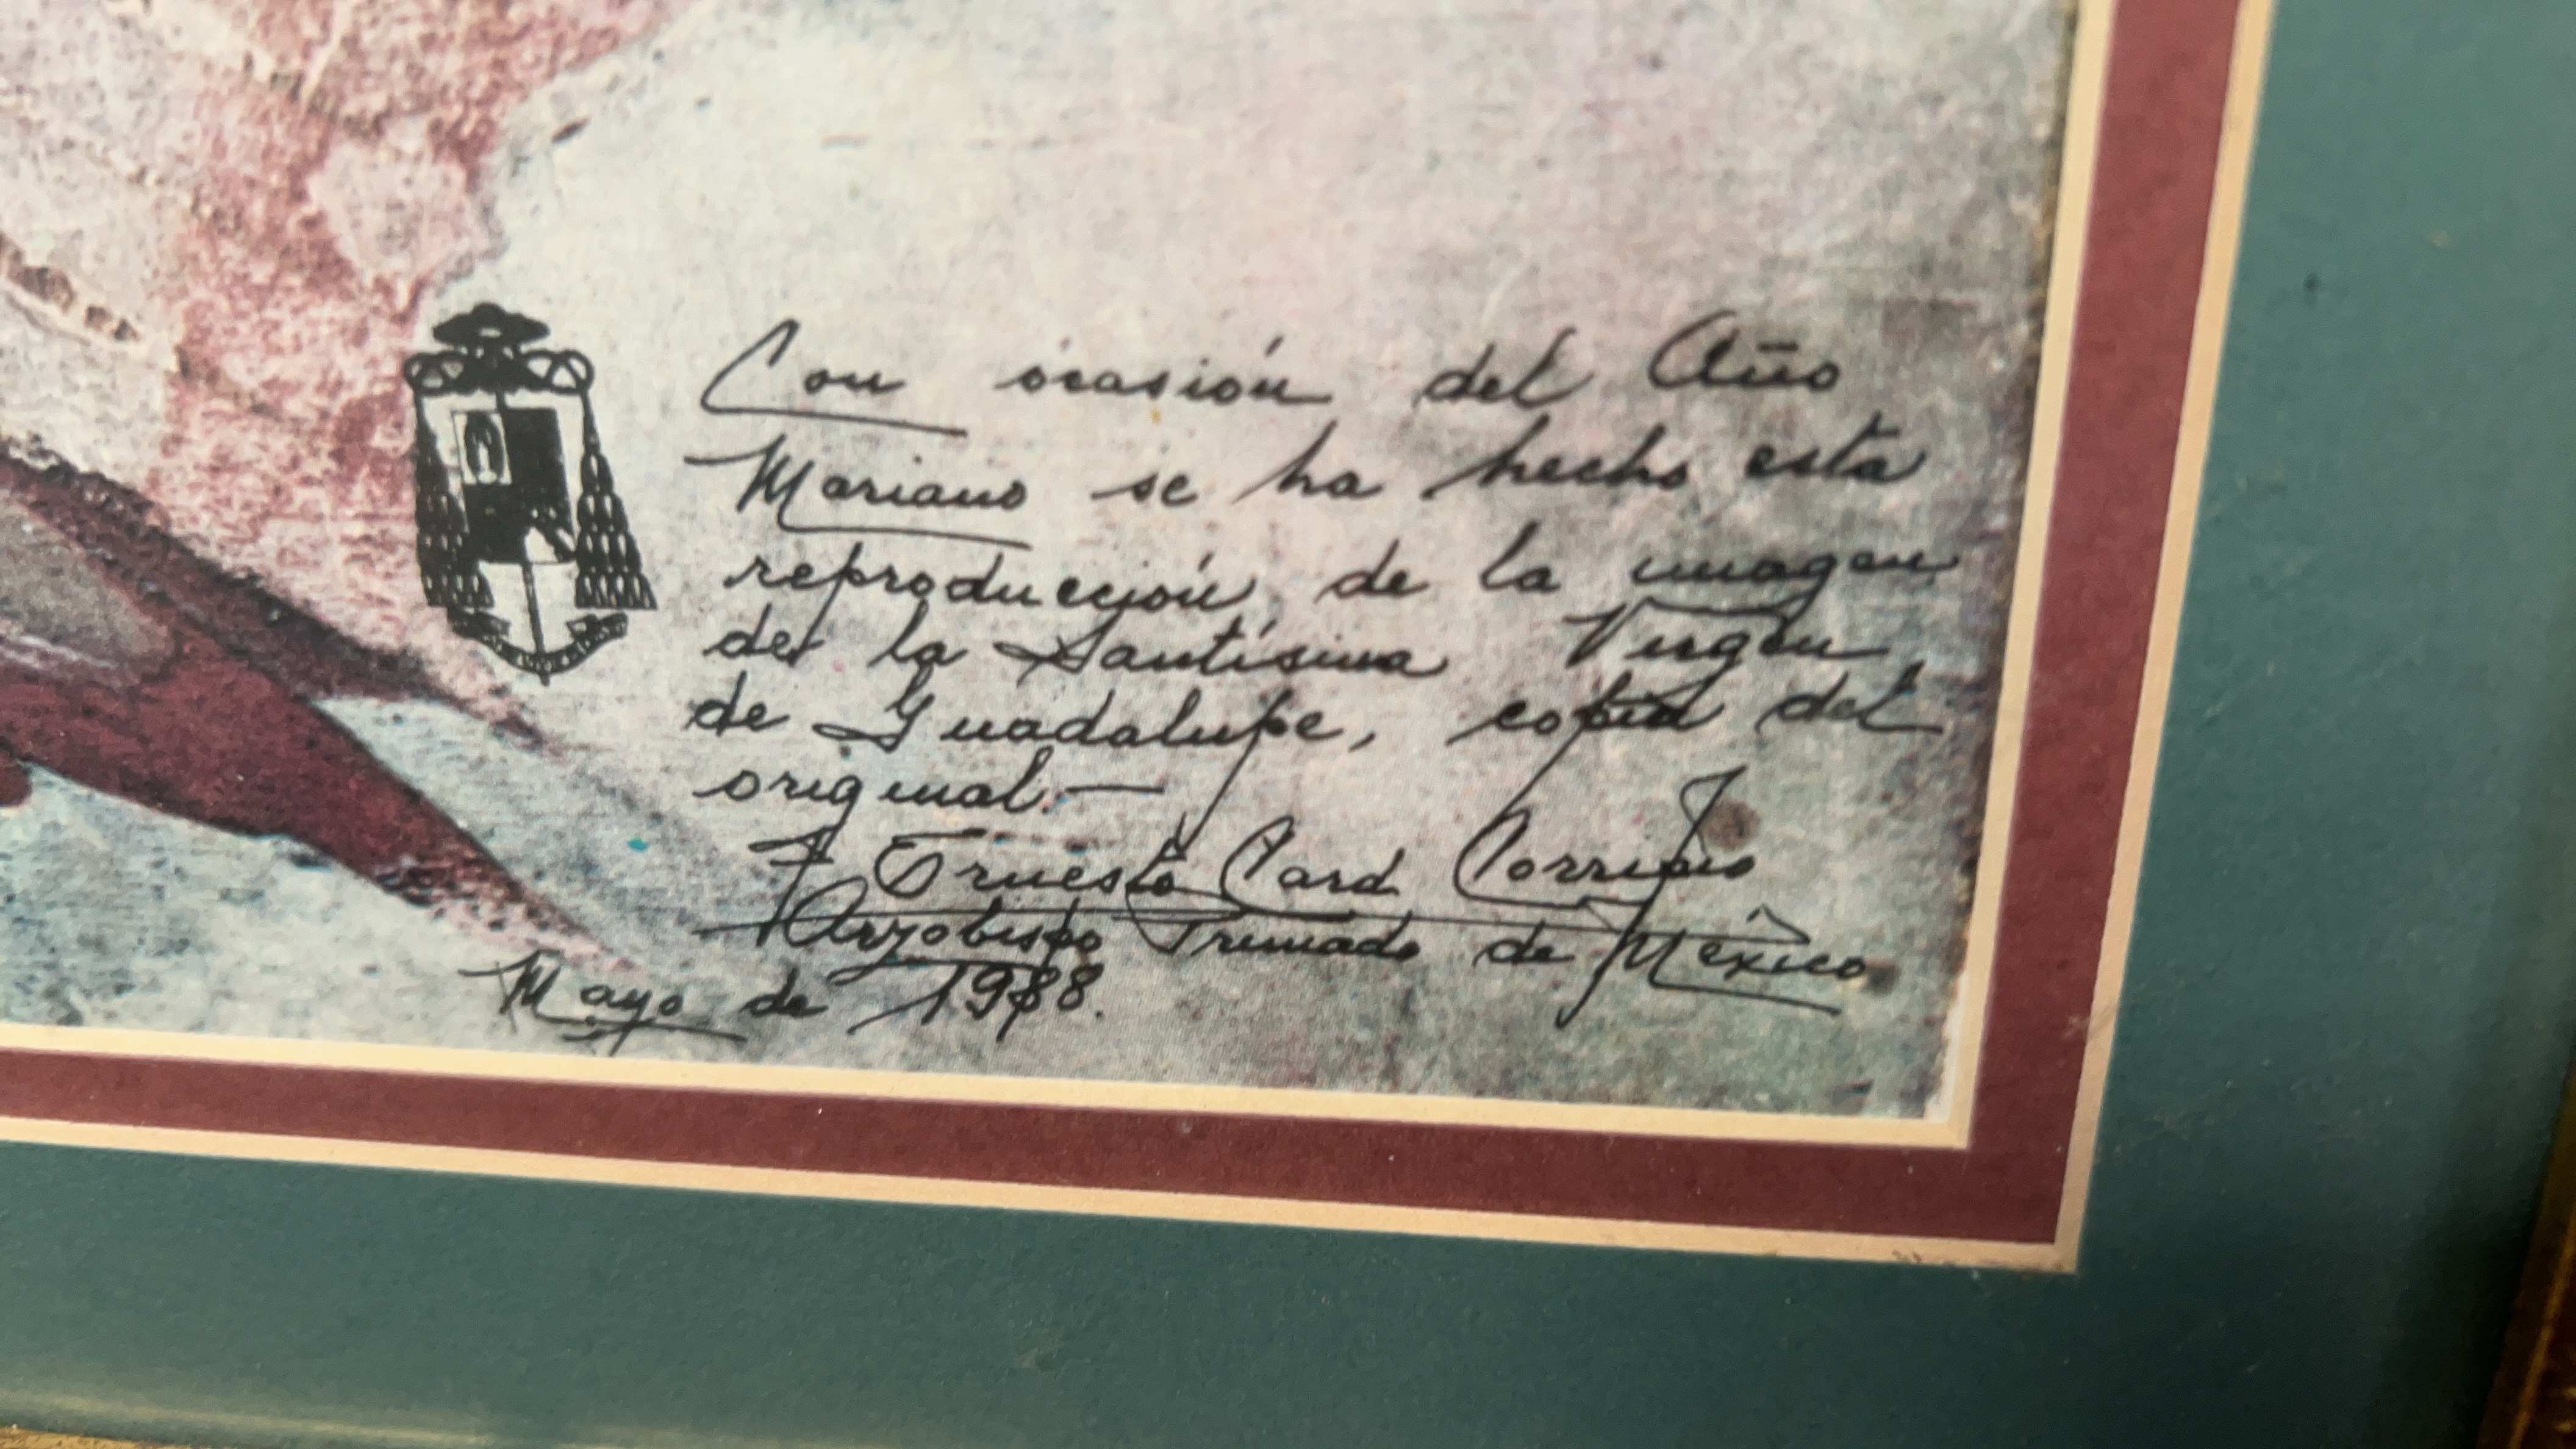 Con ocasión del Año
Mariano se ha hecho esta
reproducción de la imagen
de la Santísima Virgen
de Guadalupe, copia del
original.—
† Ernesto Card Corripio
Arzobispo Primado de México
Mayo de 1988.